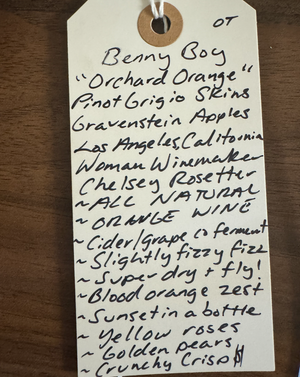 OT
Benny Boy
"Orchard Orange"
Pinot Grigio Skins
Gravenstein Apples
Los Angeles, California
Woman Winemaker
Chelsey Rosetter
~ ALL NATURAL
~ ORANGE WINE
~ Cider/grape co ferment
~ Slightly fizzy fizz
~ Super dry + fly!
~ Blood orange zest
~ Sunset in a bottle
~ Yellow roses
~ Golden pears
~ Crunchy Crisp$